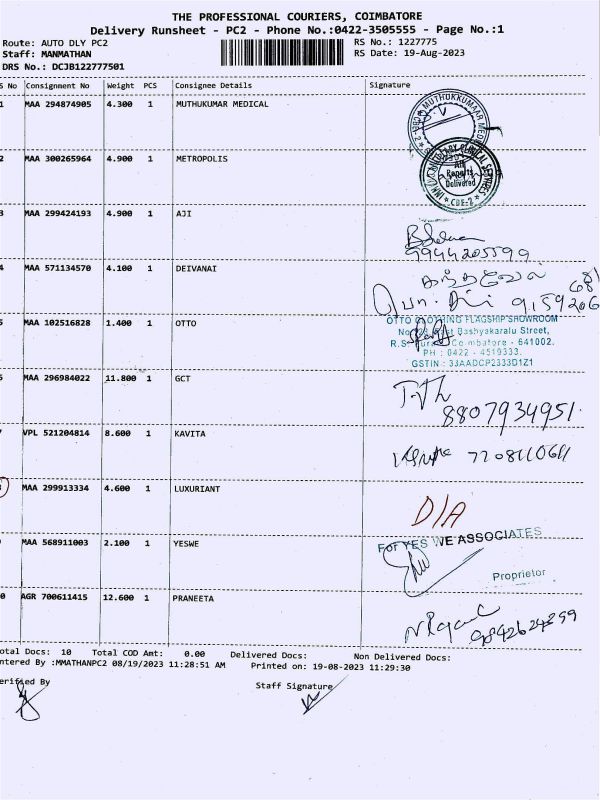 THE PROFESSIONAL COURIERS, COIMBATORE
Delivery Runsheet - PC2 - Phone No.:0422-3505555 - Page No.:1
Route: AUTO DLY PC2 RS No.: 1227775
Staff: MANMATHAN RS Date: 19-Aug-2023
DRS No.: DCJB122777501
S No Consignment No Weight PCS Consignee Details Signature
1 MAA 294874905 4.300 1 MUTHUKUMAR MEDICAL
2 MAA 300265964 4.900 1 METROPOLIS
All Reports Delivered
CBE-2
3 MAA 299424193 4.900 1 AJI
9944205599
4 MAA 571134570 4.100 1 DEIVANAI
5 MAA 102516828 1.400 1 OTTO
OTTO CLOTHING FLAGSHIP SHOWROOM
Bashyakaralu Street,
R.S. Coimbatore - 641002.
PH : 0422 - 4519333.
GSTIN : 33AADCP2333D1Z1
6 MAA 296984022 11.800 1 GCT
8807934951
7 VPL 521204814 8.600 1 KAVITA
7708110611
8 MAA 299913334 4.600 1 LUXURIANT
D/A
9 MAA 568911003 2.100 1 YESWE
For YES WE ASSOCIATES
Proprietor
0 AGR 700611415 12.600 1 PRANEETA
9842624399
otal Docs: 10 Total COD Amt: 0.00 Delivered Docs: Non Delivered Docs:
ntered By :MMATHANPC2 08/19/2023 11:28:51 AM Printed on: 19-08-2023 11:29:30
erified By Staff Signature